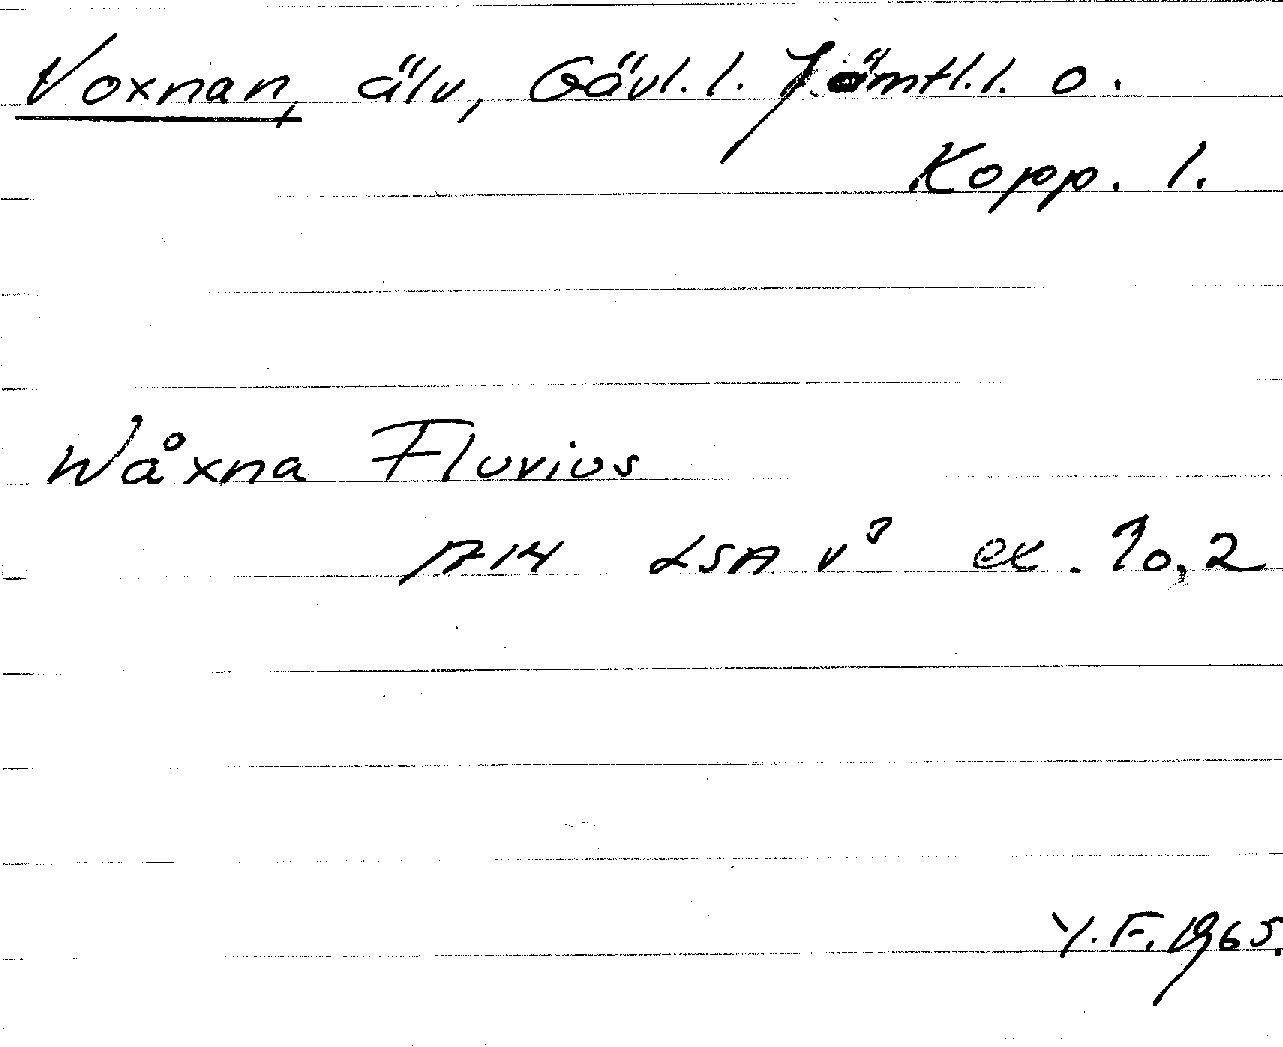 Voxnan, älv, Gävl. l. Jämtl. l. o.
Kopp. l.
Wåxna Fluvius
1714 LSA v³ ex. 10,2
Y. F. 1965.